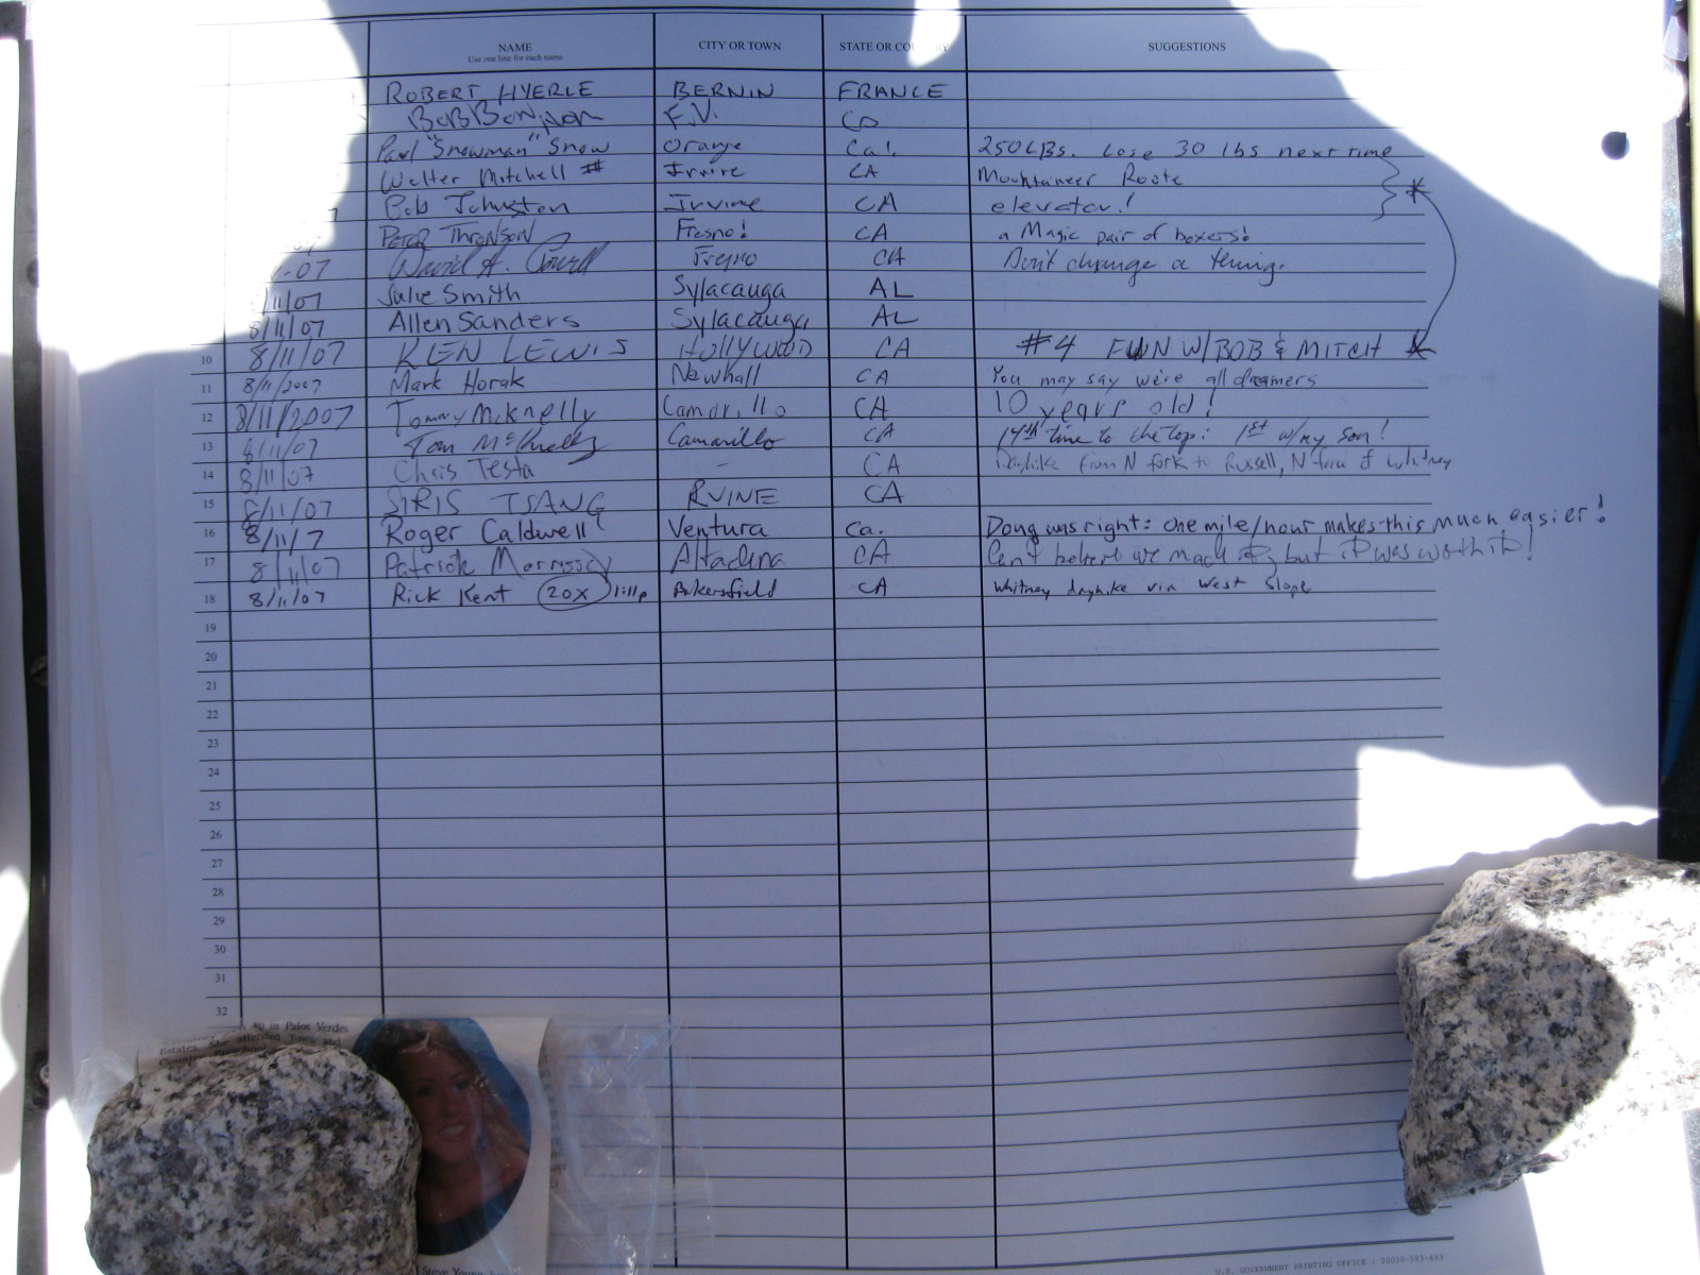 NAME CITY OR TOWN STATE OR COUNTRY SUGGESTIONS
Use one line for each name
ROBERT HYERLE BERNIN FRANCE
BOB F.V. CO
Paul "Snowman" Snow Orange Cal. 250 LBS. Lose 30 lbs next time
Walter Mitchell # Irvine CA Mountaineer Route
Bob Johnston Irvine CA elevator!
PETER THRONSON Fresno! CA a Magic pair of boxers!
-07 David A. Fresno CA Don't change a thing.
/11/07 Julie Smith Sylacauga AL
8/11/07 Allen Sanders Sylacauga AL
10 8/11/07 KEN LEWIS HOLLYWOOD CA #4 FUN W/BOB & MITCH
11 8/11/2007 Mark Horak Newhall CA You may say we're all dreamers
12 8/11/2007 Tommy McKnelly Camarillo CA 10 years old!
13 8/11/07 Tom McKnelly Camarillo CA 14th time to the top: 1st w/my son!
14 8/11/07 Chris Testa - CA Dayhike from N fork to Russell, N face of Whitney
15 8/11/07 SIRIS TSANG RVINE CA
16 8/11/7 Roger Caldwell Ventura Ca. Doug was right: one mile/hour makes this much easier!
17 8/11/07 Patrick Morrissey Altadena CA Can't believe we made it, but it was worth it!
18 8/11/07 Rick Kent 20X 1:11p Bakersfield CA Whitney dayhike via West Slope
19
20
21
22
23
24
25
26
27
28
29
30
31
32
in Palos Verdes
Estates. She attended Town and
Steve Young
U.S. GOVERNMENT PRINTING OFFICE